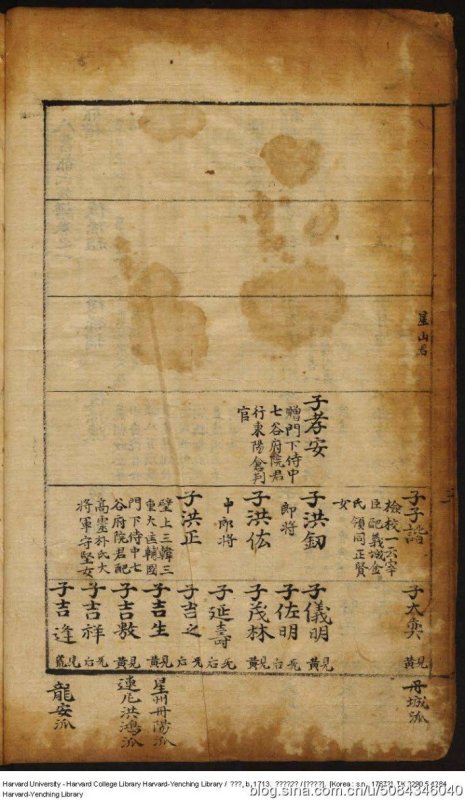 星山君
子孝安
贈門下侍中
七谷府院君
行東陽倉判
官
子子諧
檢校
臣配義城金
氏領同正賢
女
子洪釰
郎将
子洪佐
中郎将
子洪正
壁上三韓三
重大匡輔國
門下侍中七
谷府院君配
高靈朴氏大
将軍守堅女
子太
黄見
丹城派
子儀明
黄見
子佐明
子茂林
黄見
子延壽
子吉之
子吉生
黄見
星州丹陽派
子吉敷
黄見
連凡洪鴻派
子吉祥
子吉逢
龍安派
Harvard University - Harvard College Library Harvard-Yenching Library / ???, b. 1713. ?????? / [????]. [Korea : s.n.,
Harvard-Yenching Library
blog.sina.com.cn/u/5084346040